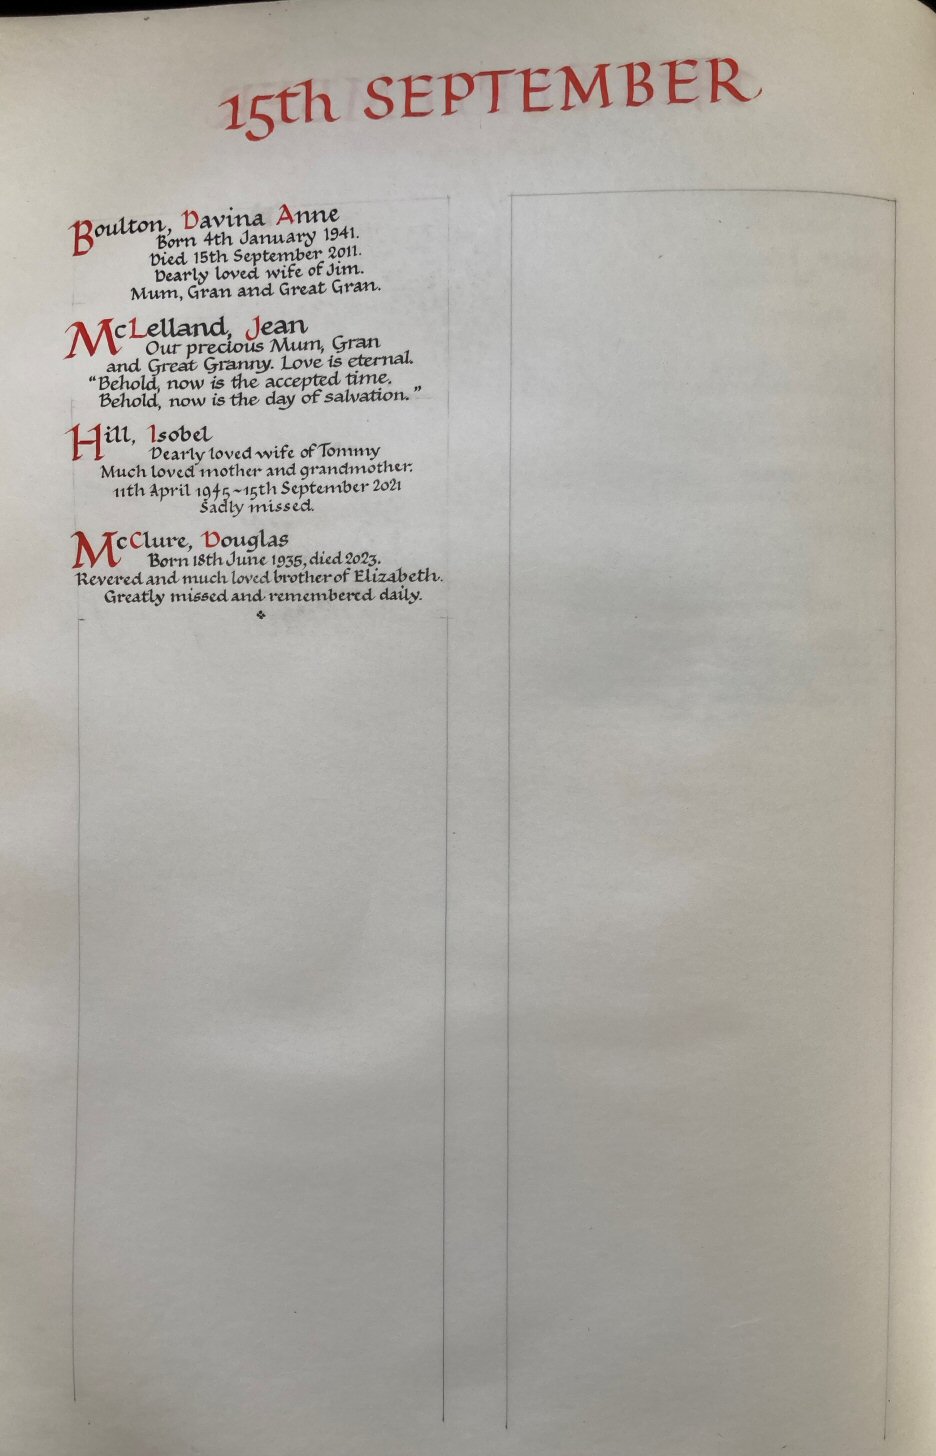 15th SEPTEMBER
Boulton, Davina Anne
Born 4th January 1941.
Died 15th September 2011.
Dearly loved wife of Jim.
Mum, Gran and Great Gran.
McLelland, Jean
Our precious Mum, Gran
and Great Granny. Love is eternal.
“Behold, now is the accepted time,
Behold, now is the day of salvation.”
Hill, Isobel
Dearly loved wife of Tommy
Much loved mother and grandmother.
11th April 1945~15th September 2021
Sadly missed.
McClure, Douglas
Born 18th June 1935, died 2023.
Revered and much loved brother of Elizabeth.
Greatly missed and remembered daily.